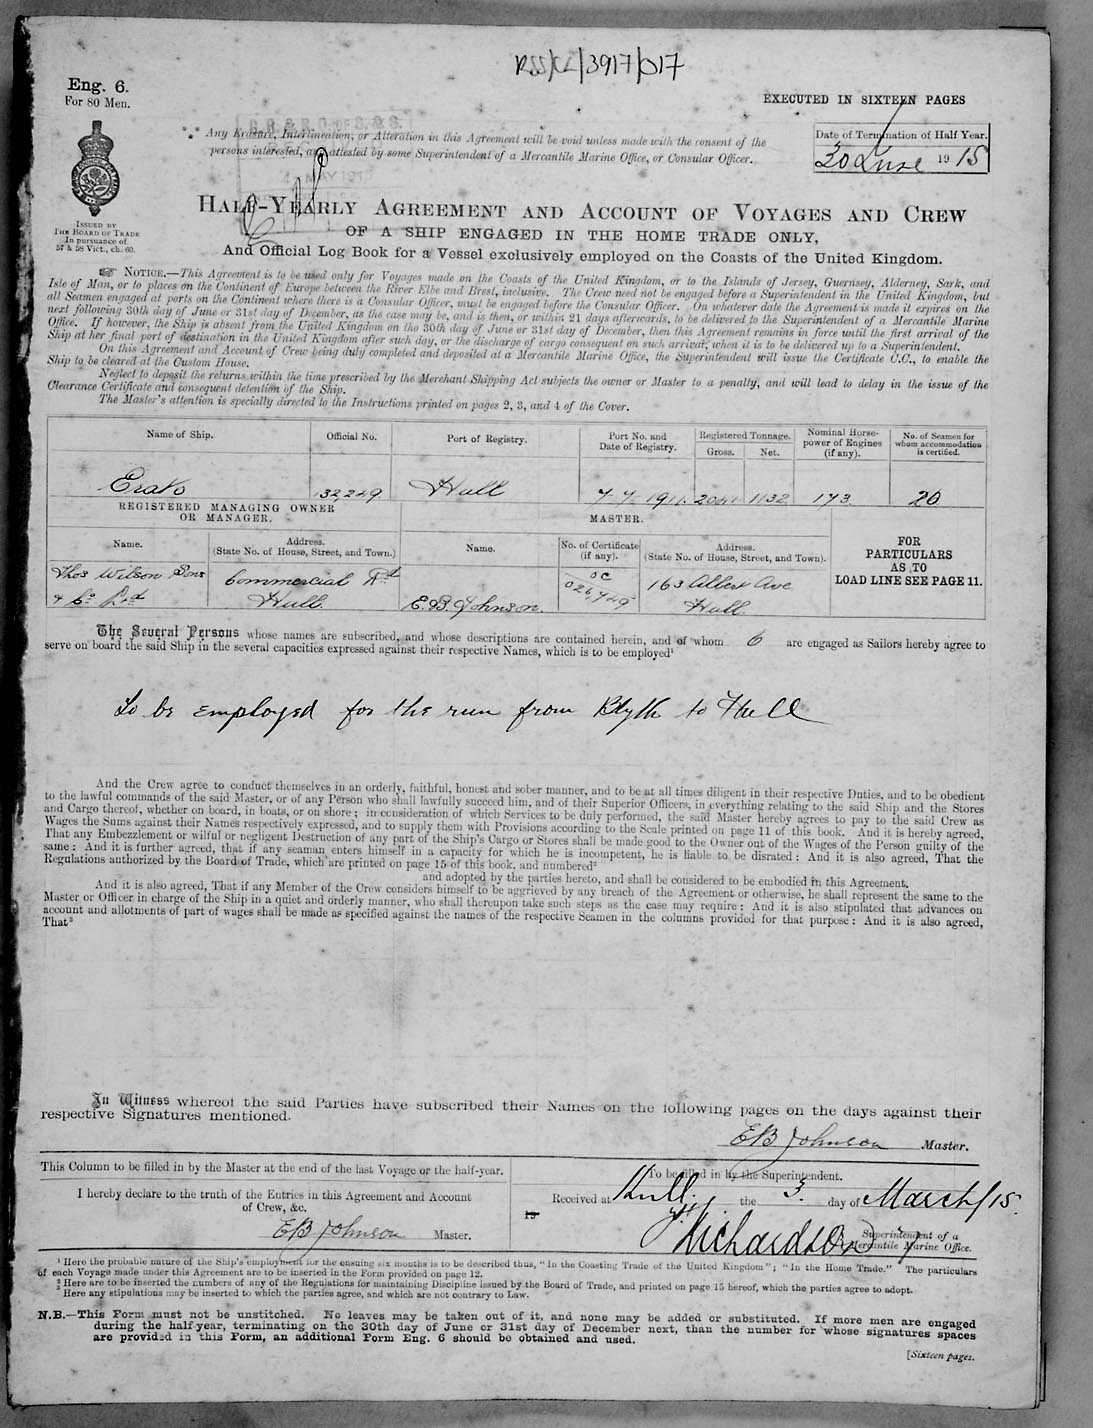 RSS/CL/3917/017
Eng. 6.
For 80 Men.
EXECUTED IN SIXTEEN PAGES
Any Erasure, Interlineation, or Alteration in this Agreement will be void unless made with the consent of the
persons interested, as attested by some Superintendent of a Mercantile Marine Office, or Consular Officer.
Date of Termination of Half Year.
30 June 1915
ISSUED BY
THE BOARD OF TRADE
In pursuance of
57 & 58 Vict., ch. 60.
HALF-YEARLY AGREEMENT AND ACCOUNT OF VOYAGES AND CREW
OF A SHIP ENGAGED IN THE HOME TRADE ONLY,
And Official Log Book for a Vessel exclusively employed on the Coasts of the United Kingdom.
☞ NOTICE.—This Agreement is to be used only for Voyages made on the Coasts of the United Kingdom, or to the Islands of Jersey, Guernsey, Alderney, Sark, and
Isle of Man, or to places on the Continent of Europe between the River Elbe and Brest, inclusive. The Crew need not be engaged before a Superintendent in the United Kingdom, but
all Seamen engaged at ports on the Continent where there is a Consular Officer, must be engaged before the Consular Officer. On whatever date the Agreement is made it expires on the
next following 30th day of June or 31st day of December, as the case may be, and is then, or within 21 days afterwards, to be delivered to the Superintendent of a Mercantile Marine
Office. If however, the Ship is absent from the United Kingdom on the 30th day of June or 31st day of December, then this Agreement remains in force until the first arrival of the
Ship at her final port of destination in the United Kingdom after such day, or the discharge of cargo consequent on such arrival, when it is to be delivered up to a Superintendent.
On this Agreement and Account of Crew being duly completed and deposited at a Mercantile Marine Office, the Superintendent will issue the Certificate C.C., to enable the
Ship to be cleared at the Custom House.
Neglect to deposit the returns within the time prescribed by the Merchant Shipping Act subjects the owner or Master to a penalty, and will lead to delay in the issue of the
Clearance Certificate and consequent detention of the Ship.
The Master's attention is specially directed to the Instructions printed on pages 2, 3, and 4 of the Cover.
Name of Ship. Official No. Port of Registry. Port No. and Date of Registry. Registered Tonnage. Gross. Net. Nominal Horse-power of Engines (if any). No. of Seamen for whom accommodation is certified.
Erato 132249 Hull 1911 2041 1132 173 20
REGISTERED MANAGING OWNER
OR MANAGER.
MASTER.
Name. Address. (State No. of House, Street, and Town.) Name. No. of Certificate (if any). Address. (State No. of House, Street, and Town).
FOR
PARTICULARS
AS TO
LOAD LINE SEE PAGE 11.
Thos Wilson Sons Commercial Rd OC 163 Albert Ave
& Co Ltd Hull. E.B. Johnson. Hull
The Several Persons whose names are subscribed, and whose descriptions are contained herein, and of whom 6 are engaged as Sailors hereby agree to
serve on board the said Ship in the several capacities expressed against their respective Names, which is to be employed¹
To be employed for the run from Blyth to Hull
And the Crew agree to conduct themselves in an orderly, faithful, honest and sober manner, and to be at all times diligent in their respective Duties, and to be obedient
to the lawful commands of the said Master, or of any Person who shall lawfully succeed him, and of their Superior Officers, in everything relating to the said Ship and the Stores
and Cargo thereof, whether on board, in boats, or on shore; in consideration of which Services to be duly performed, the said Master hereby agrees to pay to the said Crew as
Wages the Sums against their Names respectively expressed, and to supply them with Provisions according to the Scale printed on page 11 of this book. And it is hereby agreed,
That any Embezzlement or wilful or negligent Destruction of any part of the Ship's Cargo or Stores shall be made good to the Owner out of the Wages of the Person guilty of the
same: And it is further agreed, that if any seaman enters himself in a capacity for which he is incompetent, he is liable to be disrated: And it is also agreed, That the
Regulations authorized by the Board of Trade, which are printed on page 15 of this book, and numbered²
and adopted by the parties hereto, and shall be considered to be embodied in this Agreement.
And it is also agreed, That if any Member of the Crew considers himself to be aggrieved by any breach of the Agreement or otherwise, he shall represent the same to the
Master or Officer in charge of the Ship in a quiet and orderly manner, who shall thereupon take such steps as the case may require: And it is also stipulated that advances on
account and allotments of part of wages shall be made as specified against the names of the respective Seamen in the columns provided for that purpose: And it is also agreed,
That³
In Witness whereof the said Parties have subscribed their Names on the following pages on the days against their
respective Signatures mentioned.
EB Johnson Master.
This Column to be filled in by the Master at the end of the last Voyage or the half-year.
I hereby declare to the truth of the Entries in this Agreement and Account
of Crew, &c.
EB Johnson Master.
To be filled in by the Superintendent.
Received at Hull. the 3. day of March/15.
19
Richardson
Superintendent of a
Mercantile Marine Office.
¹ Here the probable nature of the Ship's employment for the ensuing six months is to be described thus, "In the Coasting Trade of the United Kingdom"; "In the Home Trade." The particulars
of each Voyage made under this Agreement are to be inserted in the Form provided on page 12.
² Here are to be inserted the numbers of any of the Regulations for maintaining Discipline issued by the Board of Trade, and printed on page 15 hereof, which the parties agree to adopt.
³ Here any stipulations may be inserted to which the parties agree, and which are not contrary to Law.
N.B.—This Form must not be unstitched. No leaves may be taken out of it, and none may be added or substituted. If more men are engaged
during the half-year, terminating on the 30th day of June or 31st day of December next, than the number for whose signatures spaces
are provided in this Form, an additional Form Eng. 6 should be obtained and used.
[Sixteen pages.